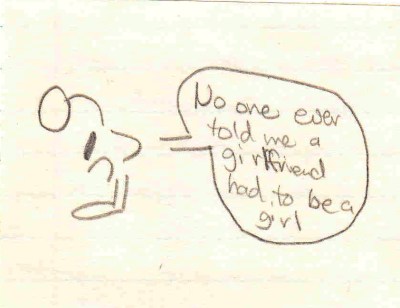 No one ever
told me a
girlfriend
had to be a
girl